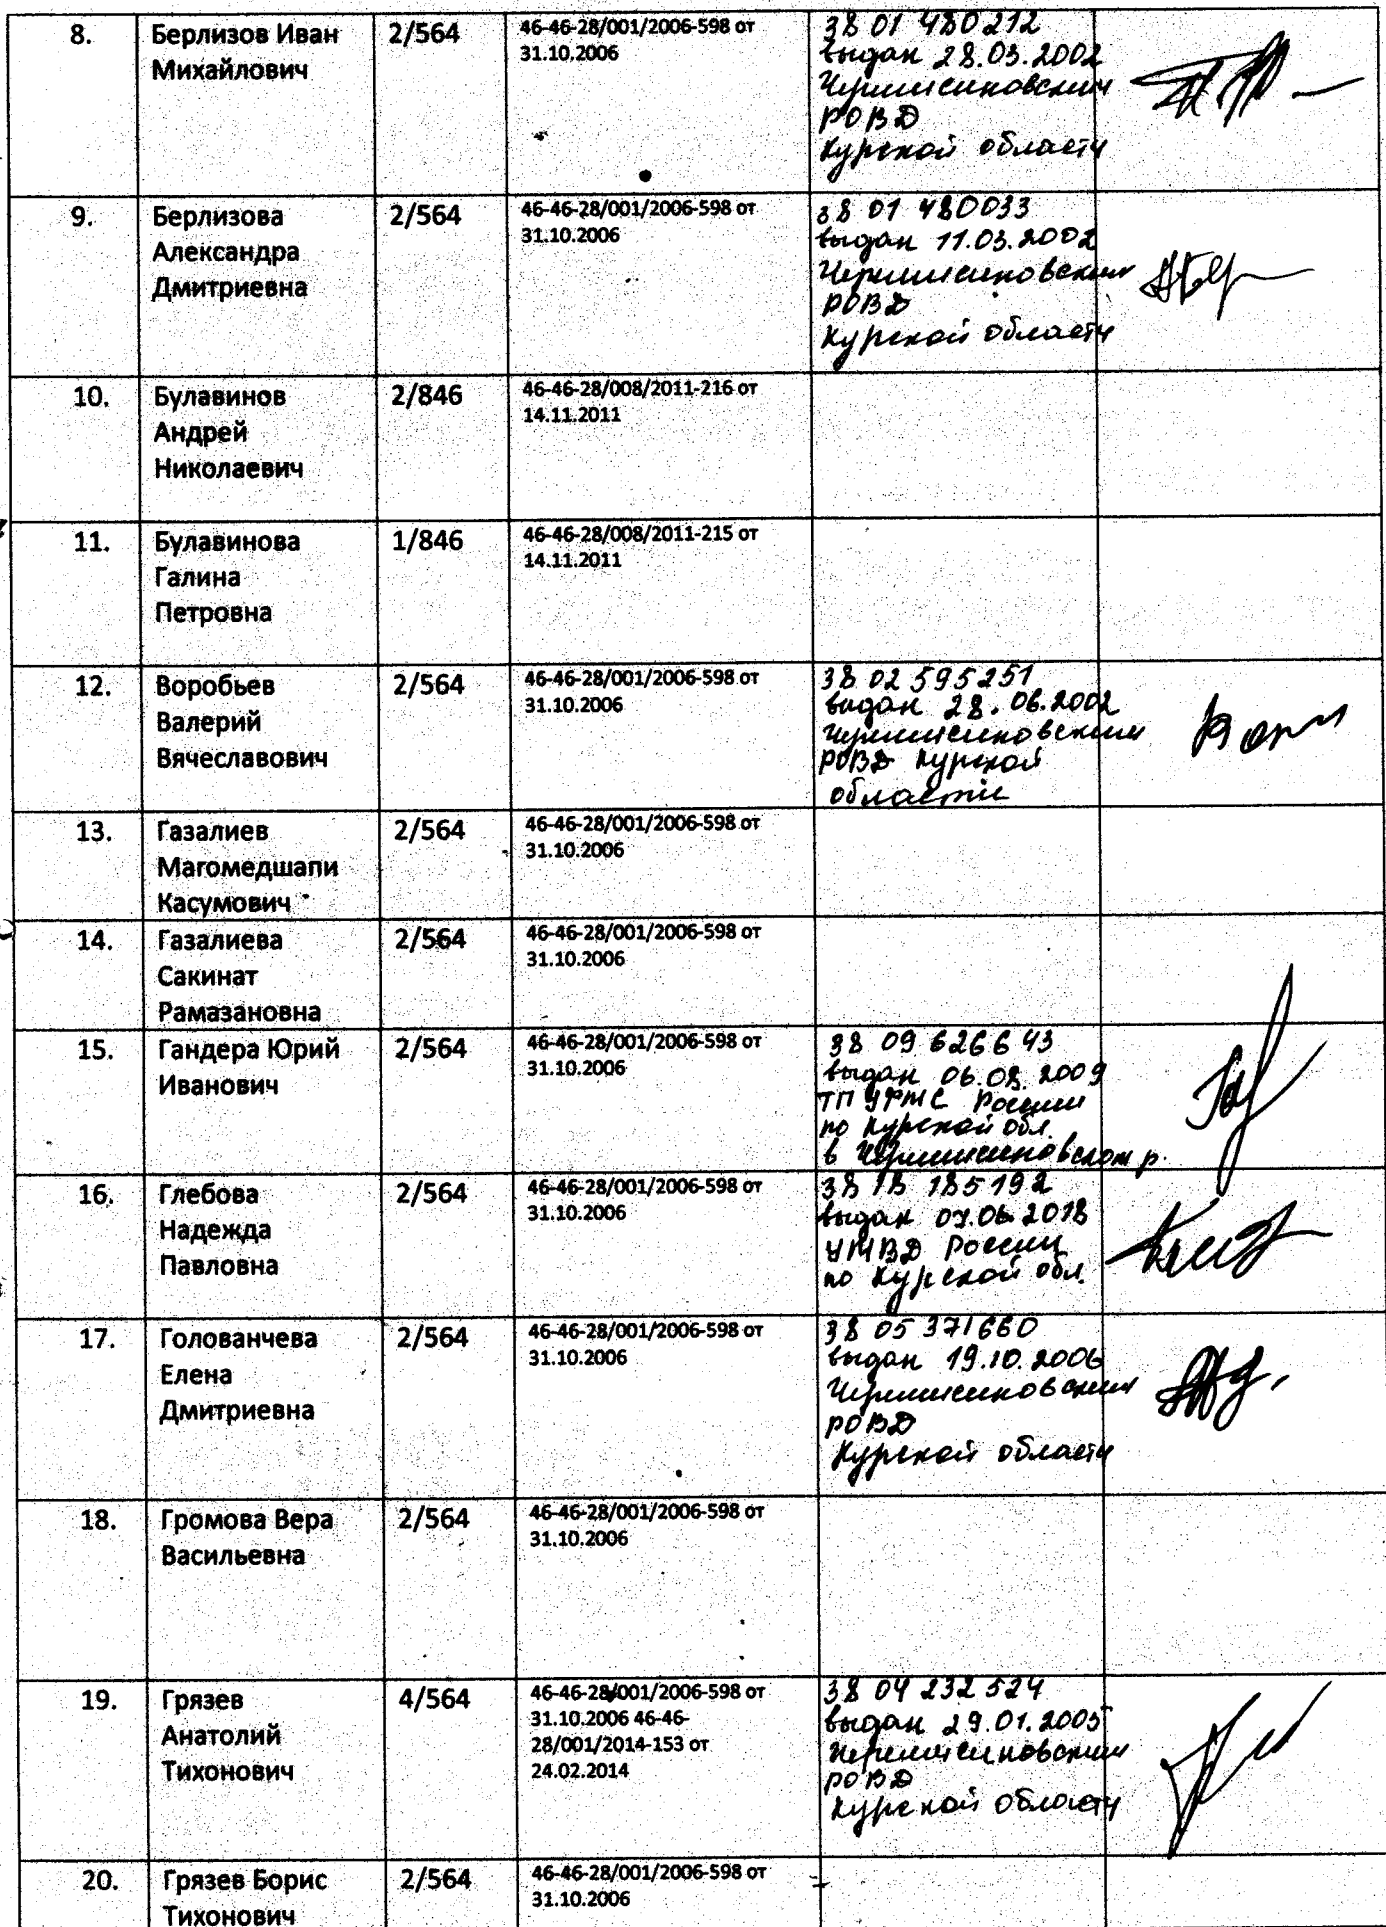 8. Берлизов Иван Михайлович 2/564 46-46-28/001/2006-598 от 31.10.2006
38 01 480212
выдан 28.03.2002
Черемисиновским
РОВД
Курской области
9. Берлизова Александра Дмитриевна 2/564 46-46-28/001/2006-598 от 31.10.2006
38 01 480033
выдан 11.03.2002
Черемисиновским
РОВД
Курской области
10. Булавинов Андрей Николаевич 2/846 46-46-28/008/2011-216 от 14.11.2011
11. Булавинова Галина Петровна 1/846 46-46-28/008/2011-215 от 14.11.2011
12. Воробьев Валерий Вячеславович 2/564 46-46-28/001/2006-598 от 31.10.2006
38 02 595251
выдан 28.06.2002
Черемисиновским
РОВД Курской
области
13. Газалиев Магомедшапи Касумович 2/564 46-46-28/001/2006-598 от 31.10.2006
14. Газалиева Сакинат Рамазановна 2/564 46-46-28/001/2006-598 от 31.10.2006
15. Гандера Юрий Иванович 2/564 46-46-28/001/2006-598 от 31.10.2006
38 09 626643
выдан 06.08.2009
ТП УФМС России
по Курской обл.
в Черемисиновском р.
16. Глебова Надежда Павловна 2/564 46-46-28/001/2006-598 от 31.10.2006
38 18 185192
выдан 07.06.2018
УМВД России
по Курской обл.
17. Голованчева Елена Дмитриевна 2/564 46-46-28/001/2006-598 от 31.10.2006
38 05 371660
выдан 19.10.2006
Черемисиновским
РОВД
Курской области
18. Громова Вера Васильевна 2/564 46-46-28/001/2006-598 от 31.10.2006
19. Грязев Анатолий Тихонович 4/564 46-46-28/001/2006-598 от 31.10.2006 46-46-28/001/2014-153 от 24.02.2014
38 04 232524
выдан 29.01.2005
Черемисиновским
РОВД
Курской области
20. Грязев Борис Тихонович 2/564 46-46-28/001/2006-598 от 31.10.2006